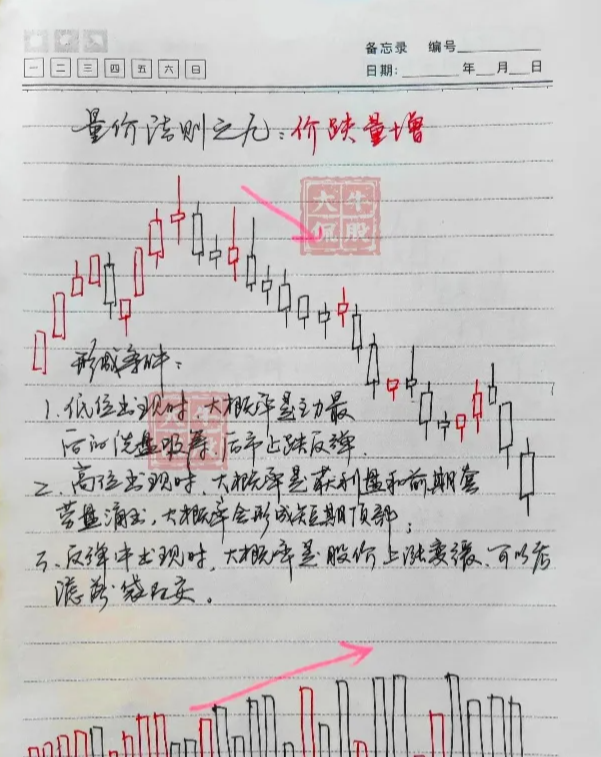 备忘录 编号
一 二 三 四 五 六 日
日期: 年 月 日
量价法则之九：价跌量增
大牛
侃股
形成条件：
1、低位出现时，大概率是主力最
后的洗盘吸筹，后市止跌反弹。
2、高位出现时，大概率是获利盘和前期套
牢盘涌出，大概率会形成短期顶部；
3、反弹中出现时，大概率是股价上涨变缓，可以考
虑落袋为安。